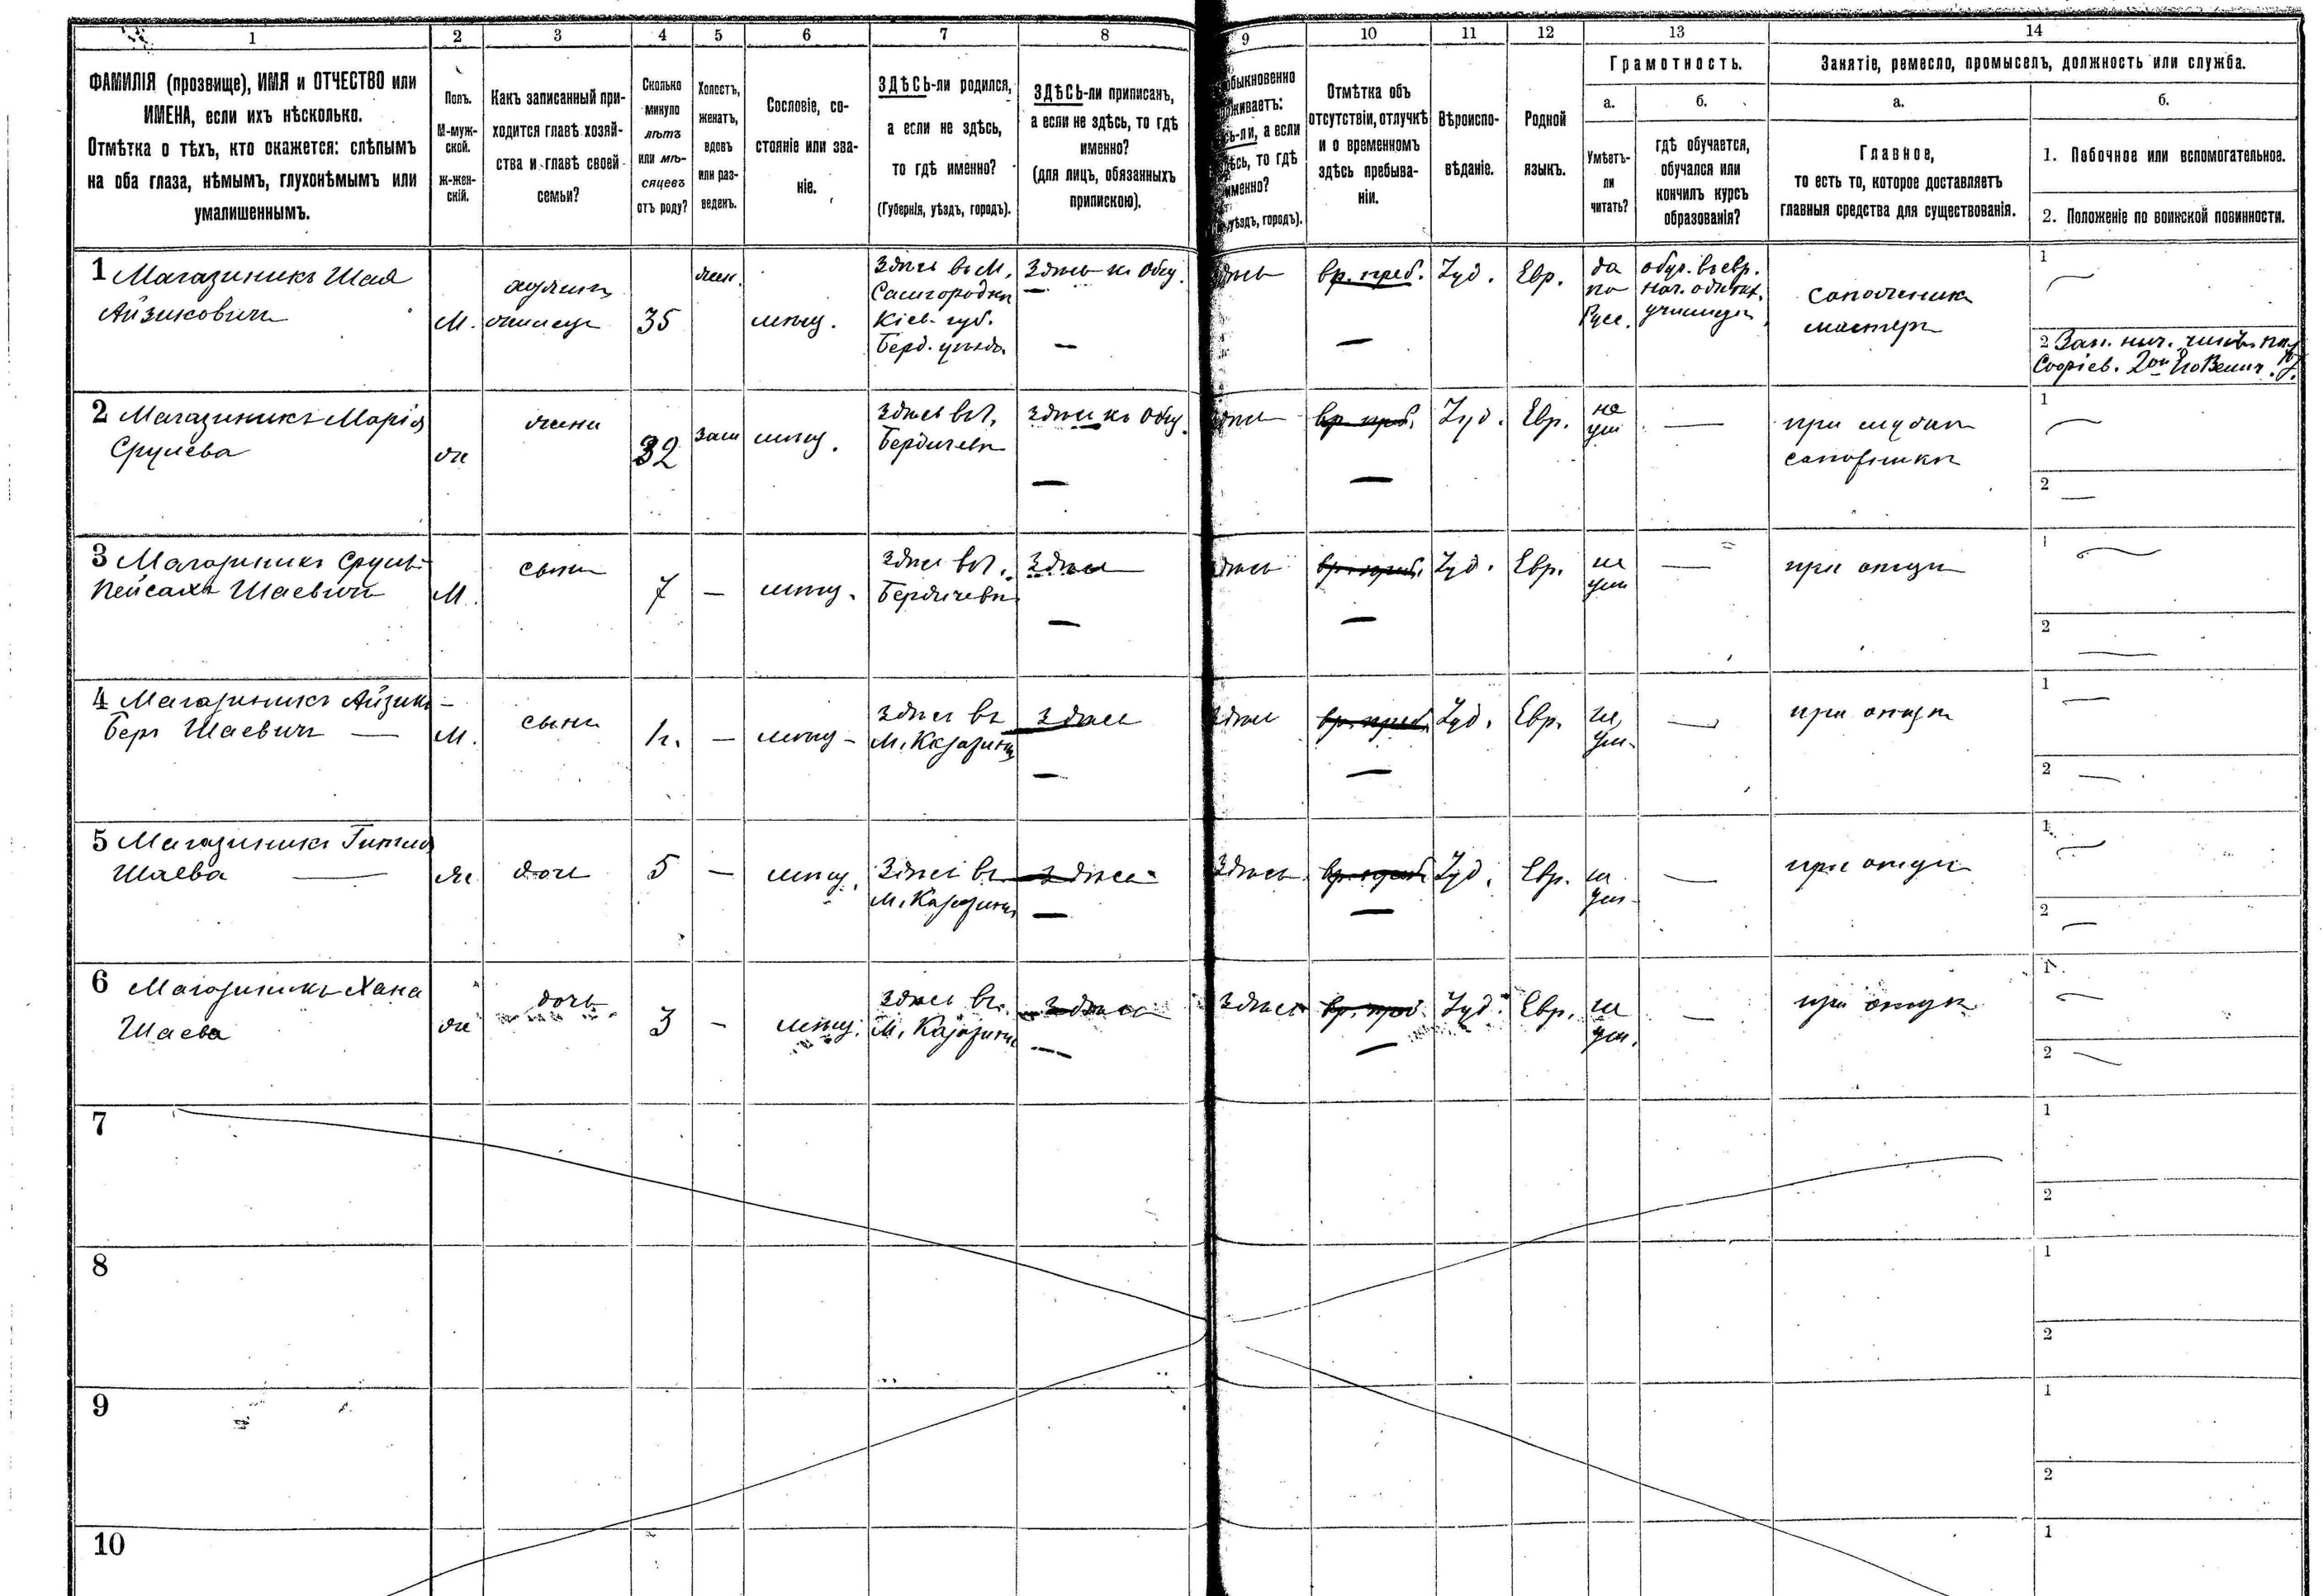 1 2 3 4 5 6 7 8 9 10 11 12 13 14
ФАМИЛІЯ (прозвище), ИМЯ и ОТЧЕСТВО или
ИМЕНА, если ихъ нѣсколько.
Отмѣтка о тѣхъ, кто окажется: слѣпымъ
на оба глаза, нѣмымъ, глухонѣмымъ или
умалишеннымъ.
Полъ.
М-муж-
ской.
ж-жен-
скій.
Какъ записанный при-
ходится главѣ хозяй-
ства и главѣ своей
семьи?
Сколько
минуло
лѣтъ
или мѣ-
сяцевъ
отъ роду?
Холостъ,
женатъ,
вдовъ
или раз-
веденъ.
Сословіе, со-
стояніе или зва-
ніе.
ЗДѢСЬ-ли родился,
а если не здѣсь,
то гдѣ именно?
(Губернія, уѣздъ, городъ).
ЗДѢСЬ-ли приписанъ,
а если не здѣсь, то гдѣ
именно?
(для лицъ, обязанныхъ
припискою).
быкновенно
живаетъ:
сь-ли, а если
ѣсь, то гдѣ
именно?
уѣздъ, городъ).
Отмѣтка объ
отсутствіи, отлучкѣ
и о временномъ
здѣсь пребыва-
ніи.
Вѣроиспо-
вѣданіе.
Родной
языкъ.
Грамотность.
а.
Умѣетъ-
ли
читать?
б.
гдѣ обучается,
обучался или
кончилъ курсъ
образованія?
Занятіе, ремесло, промыселъ, должность или служба.
а.
Главное,
то есть то, которое доставляетъ
главныя средства для существованія.
б.
1. Побочное или вспомогательное.
2. Положеніе по воинской повинности.
1 Магазиникъ Шая
Айзиковичъ
М.
35
жен.
мѣщ.
Здѣсь въ М.
Самгородкѣ
Кіев. губ.
Берд. уѣзда
Здѣсь къ общ.
здѣсь
вр. преб.
Іуд.
Евр.
да
по
Русс.
обуч. въ евр.
училищѣ
сапожникъ
мастеръ
1
2 Зап.
2 Магазиникъ Марія
Срулева
ж
жена
32
зам
мѣщ.
здѣсь въ г.
Бердичевѣ
здѣсь къ общ.
здѣсь
вр. преб.
Іуд.
Евр.
не
ум
при мужѣ
сапожникѣ
1
2
3 Магазиникъ Сруль-
Пейсахъ Шаевичъ
М.
сынъ
7
мѣщ.
здѣсь въ г.
Бердичевѣ
здѣсь
здѣсь
вр. преб.
Іуд.
Евр.
не
ум
при отцѣ
1
2
4 Магазиникъ Айзикъ-
Беръ Шаевичъ
М.
сынъ
мѣщ
здѣсь въ
М. Казатинѣ
здѣсь
здѣсь
вр. преб.
Іуд.
Евр.
не
ум.
при отцѣ
1
2
5 Магазиникъ Гитля
Шаева
ж
дочь
5
мѣщ.
Здѣсь въ
М. Казатинѣ
здѣсь
Здѣсь
вр. преб.
Іуд.
Евр.
не
ум.
при отцѣ
1
2
6 Магазиникъ Хана
Шаева
ж
дочь
3
мѣщ.
здѣсь въ
М. Казатинѣ
здѣсь
здѣсь
вр. преб.
Іуд.
Евр.
не
ум.
при отцѣ
1
2
7
1
2
8
1
2
9
1
2
10
1